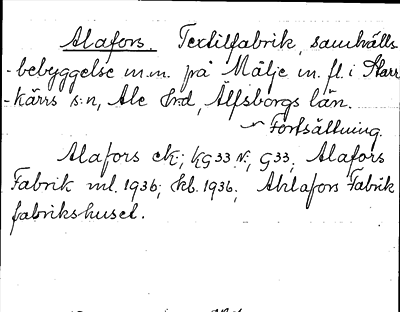 Alafors. Textilfabrik, samhälls-
-bebyggelse m.m. på Mälje m. fl. i Starr-
-kärrs s:n, Ale hd, Älfsborgs län.
Fortsättning.
Alafors ek.; KG 33 N., G33, Alafors
Fabrik ml. 1936; kb. 1936; Ahlafors Fabrik
fabrikshuset.